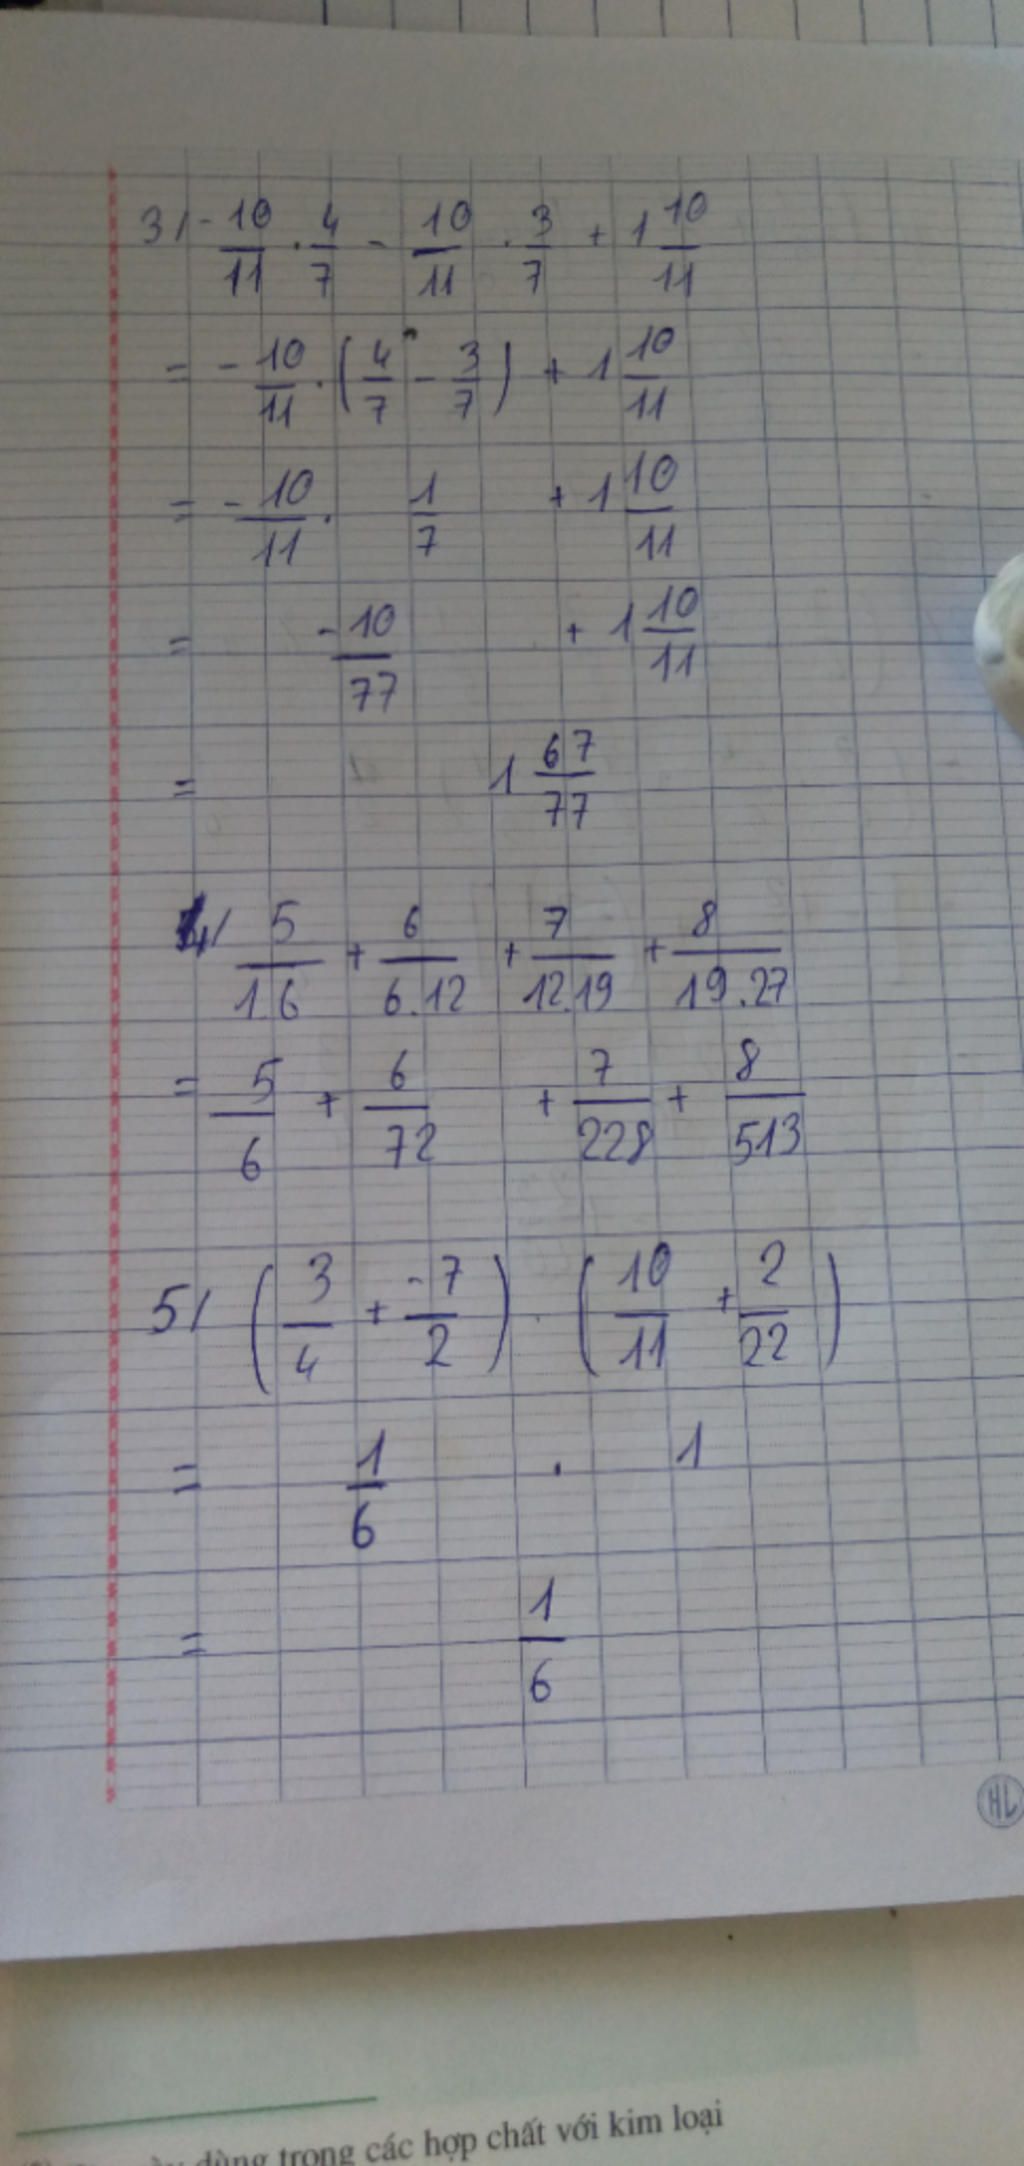 3/ -10/11 . 4/7 - 10/11 . 3/7 + 1 10/11
= -10/11 . (4/7 - 3/7) + 1 10/11
= -10/11 . 1/7 + 1 10/11
= -10/77 + 1 10/11
= 1 67/77
4/ 5/1.6 + 6/6.12 + 7/12.19 + 8/19.27
= 5/6 + 6/72 + 7/228 + 8/513
5/ (3/4 + -7/2) . (10/11 + 2/22)
= 1/6 . 1
= 1/6
HL
dùng trong các hợp chất với kim loại